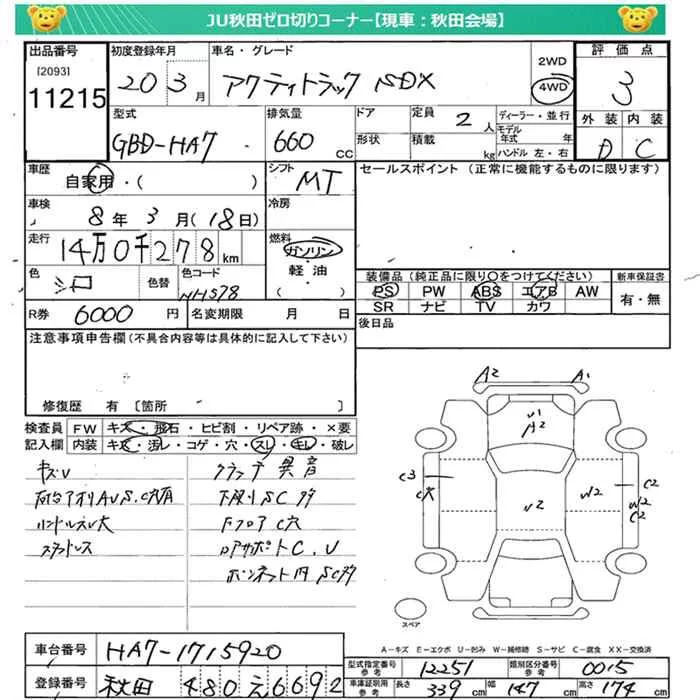 JU秋田ゼロ切りコーナー【現車：秋田会場】
出品番号
[2093]
11215
初度登録年月
20 3月
車名・グレード
アクティトラック SDX
2WD
4WD
評価点
3
外装 内装
D C
型式
GBD-HA7
排気量
660
cc
ドア
形状
定員
2人
積載
kg
ディーラー・並行
モデル年式 年
ハンドル 左・右
車歴
自家用・( )
シフト
MT
セールスポイント（正常に機能するものに限ります）
車検
8年3月(18日)
冷房
走行
14万0千278km
燃料
ガソリン
軽油
( )
色
シロ
色替
色コード
NH578
装備品（純正品に限り○をつけてください）
PS PW ABS エアB AW
SR ナビ TV カワ
新車保証書
有・無
R券
6000円
名変期限 月 日
後日品
注意事項申告欄（不具合内容等は具体的に記入して下さい）
修復歴 有 〔箇所 〕
検査員記入欄
FW キズ・飛石・ヒビ割・リペア跡・×要
内装 キズ・汚レ・コゲ・穴・スレ・キレ・破レ
キズU
荷台アオリAUS.C穴有
ハンドルスレ大
スタッドレス
クラッチ異音
下廻りSC多
Fフロア C穴
ボンネット内 SC多
A2 A1
U1
A2
C3
C穴
U2
W2
C2
W2
C2
スペア
A－キズ E－エクボ U－凹み W－補修跡 S－サビ C－腐食 XX－交換済
車台番号
HA7-1715920
登録番号
秋田 480え6692
型式指定番号
参考
12251
類別区分番号
参考
0015
車庫証明用
参考
長さ 339cm
幅 147cm
高さ 174cm